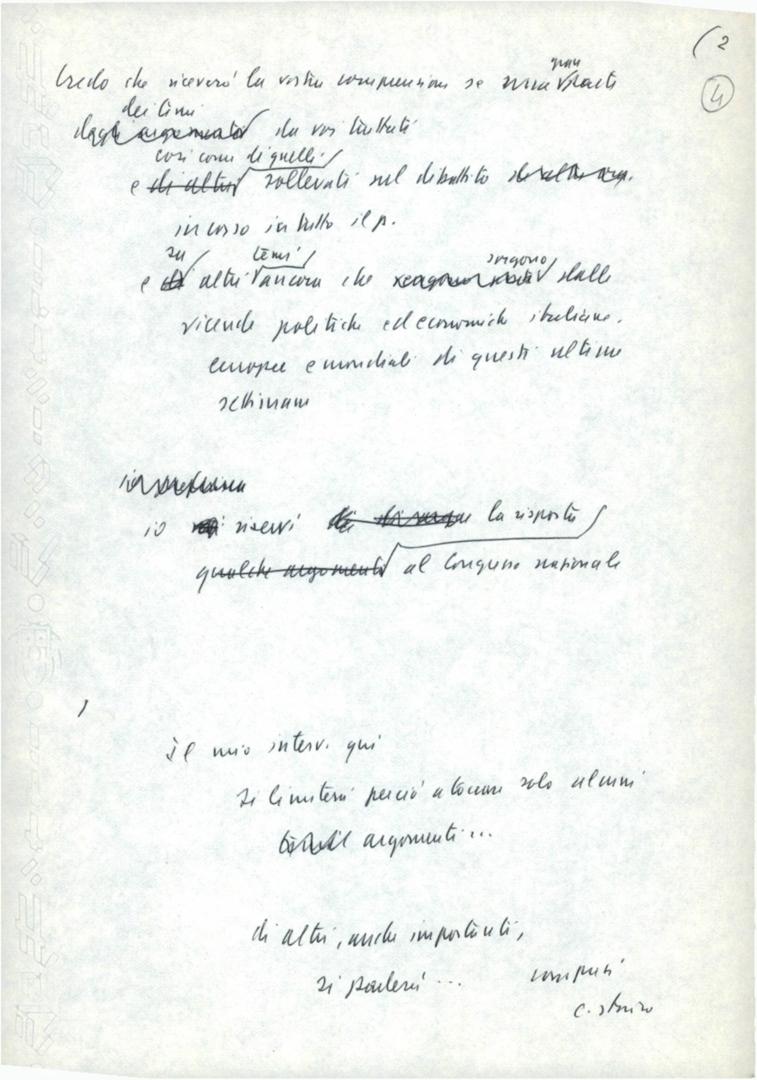 (2
4
Credo che riceverò la vostra comprensione se gran parte
dei temi
degli argomenti da voi trattati
così come di quelli
e di altri sollevati nel dibattito
in corso in tutto il p.
su temi sorgono
e di altri ancora che dalle
vicende politiche ed economiche italiane,
europee e mondiali di questi ultime
settimane
io
io riservi la risposta
qualche argomento al Congresso nazionale
Il mio interv. qui
si limiterà perciò a toccare solo alcuni
argomenti...
di altri, anche importanti,
si parlerà ... compresi